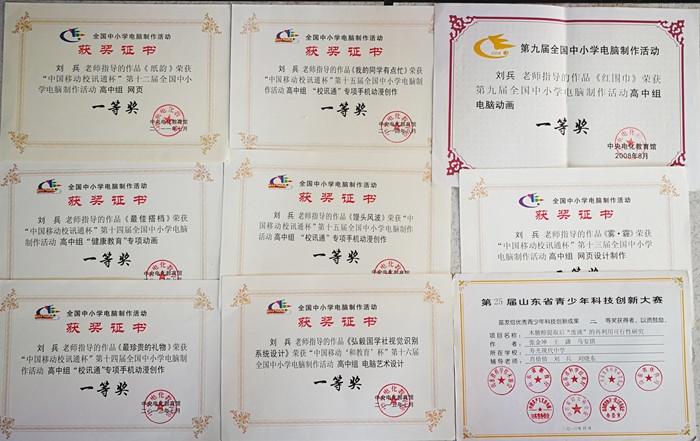 全国中小学电脑制作活动
获奖证书
刘 兵 老师指导的作品《纸韵》荣获
“中国移动校讯通杯”第十二届全国中小
学电脑制作活动 高中组 网页
一等奖
中央电化教育馆
全国中小学电脑制作活动
获奖证书
刘 兵 老师指导的作品《我的同学有点忙》荣获
“中国移动校讯通杯”第十五届全国中小学电脑制
作活动 高中组 “校讯通”专项手机动漫创作
一等奖
中央电化教育馆
第九届全国中小学电脑制作活动
刘兵 老师指导的作品《红围巾》荣获
第九届全国中小学电脑制作活动 高中组
电脑动画
一等奖
中央电化教育馆
2008年8月
全国中小学电脑制作活动
获奖证书
刘 兵 老师指导的作品《最佳搭档》荣获
“中国移动校讯通杯”第十四届全国中小学电脑
制作活动 高中组 “健康教育”专项动画
一等奖
全国中小学电脑制作活动
获奖证书
刘 兵 老师指导的作品《馒头风波》荣获“中
国移动校讯通杯”第十五届全国中小学电脑制作
活动 高中组 “校讯通”专项手机动漫创作
一等奖
全国中小学电脑制作活动
获奖证书
刘 兵 老师指导的作品《雾·霾》荣获
“中国移动校讯通杯”第十三届全国中小学
电脑制作活动 高中组 网页设计制作
一等奖
全国中小学电脑制作活动
获奖证书
刘 兵 老师指导的作品《最珍贵的礼物》荣获
“中国移动校讯通杯”第十四届全国中小学电脑制
作活动 高中组 “校讯通”专项手机动漫创作
一等奖
中央电化教育馆
全国中小学电脑制作活动
获奖证书
刘 兵 老师指导的作品《弘毅国学社视觉识别
系统设计》荣获“中国移动‘和教育’杯”第十六届
全国中小学电脑制作活动 高中组 电脑艺术设计
一等奖
中央电化教育馆
第25届山东省青少年科技创新大赛
兹发给优秀青少年科技创新成果 二 等奖获得者，以资鼓励。
项目名称：
作 者：
所在学校： 寿光现代中学
辅导老师： 刘 兵 刘晓东